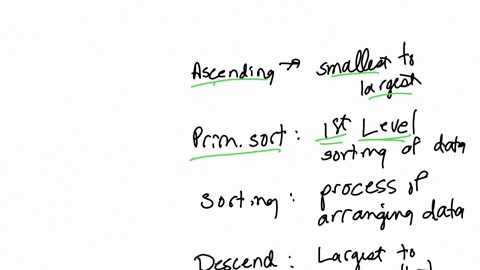 Ascending → smallest to
largest
Prim. sort : 1st Level
sorting of data
Sorting : process of
arranging data
Descend : Largest to